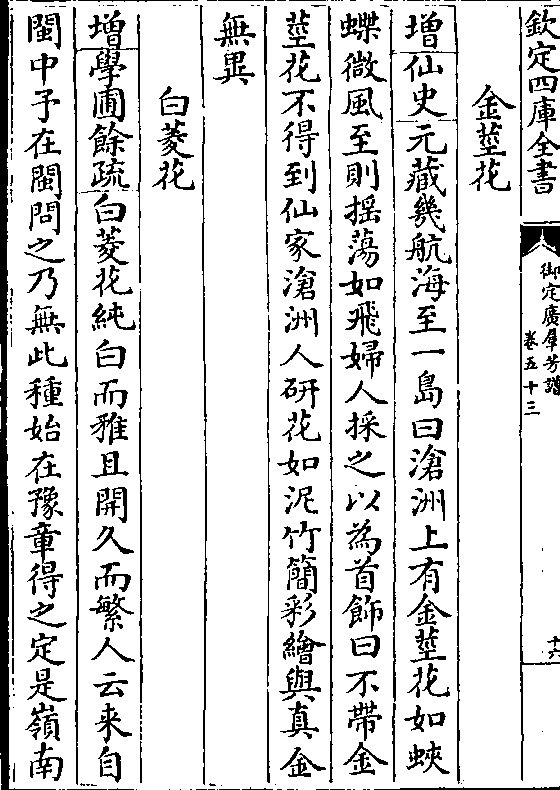 欽定四庫全書
御定廣羣芳譜
卷五十三
十六
金莖花
增仙史元藏幾航海至一島曰滄洲上有金莖花如蛺
蝶微風至則揺蕩如飛婦人採之以為首飾曰不帶金
莖花不得到仙家滄洲人研花如泥竹簡彩繪與真金
無異
白菱花
增學圃餘疏白菱花純白而雅且開久而繁人云来自
閩中予在閩問之乃無此種始在豫章得之定是嶺南